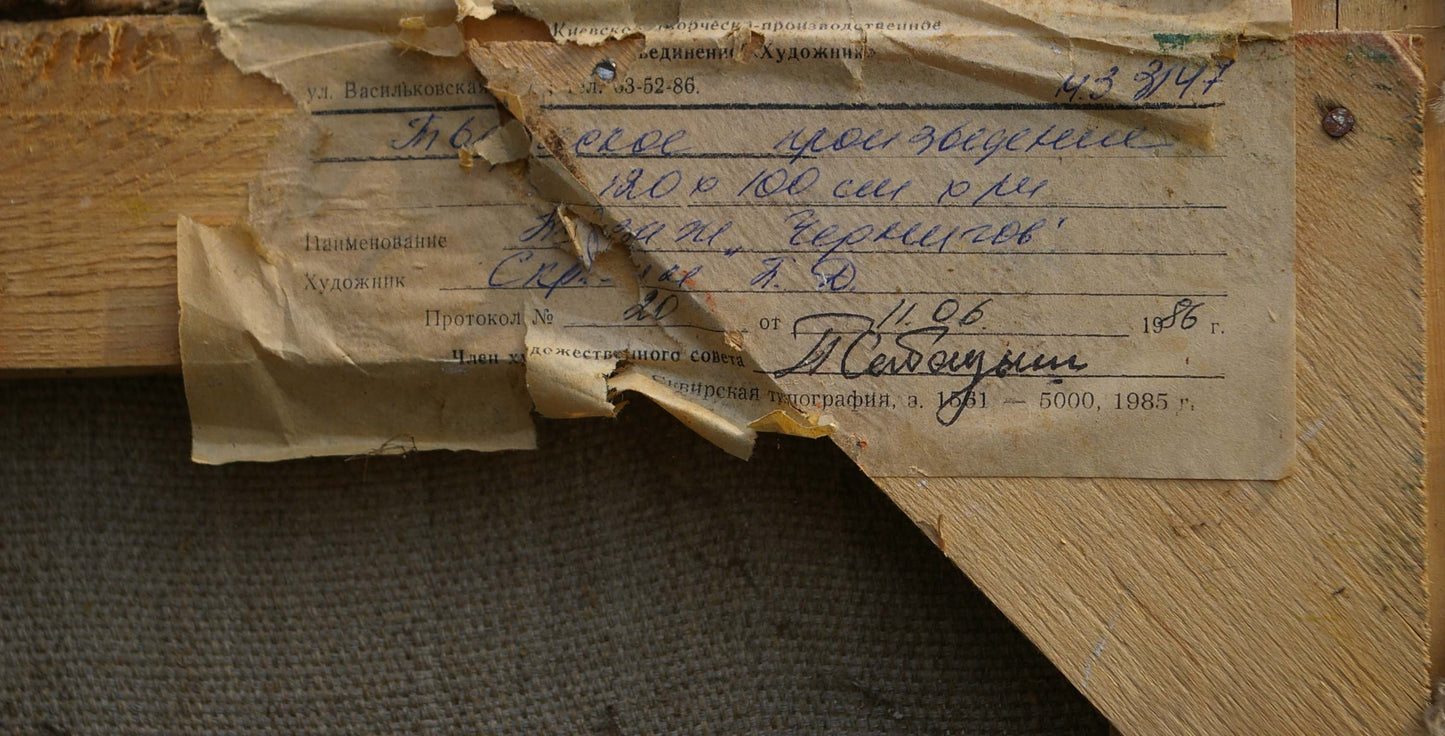 Киевско творческо-производственное
ъединение «Художник»
ул. Васильковская тел. 63-52-86.
ч.з 3147
Тв ское произведение
120 х 100 см х/м
Наименование "Чернигов"
Художник Т. Д.
Протокол № 20 от 11.06. 1986 г.
Член художественного совета
Сквирская типография, з. 1561 — 5000, 1985 г.